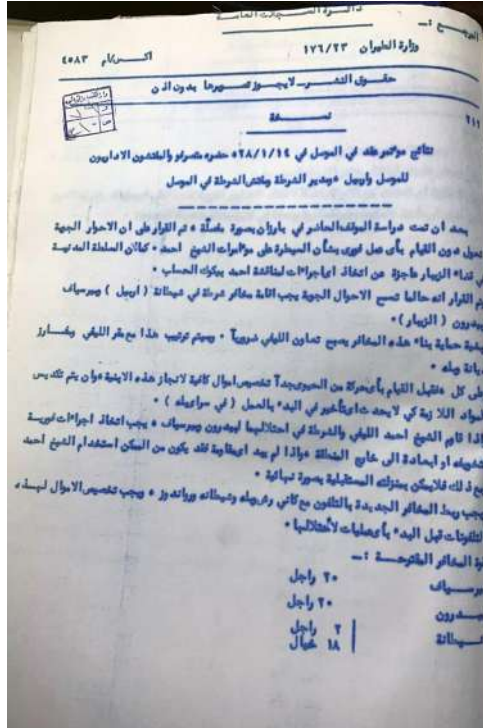 دائرة السجلات العامة
المرجع :ـ
وزارة الطيران ١٧٦/٢٣ اكس/ام ٤٥٨٣
حقوق النشر ـ لا يجوز تصويرها بدون اذن
٢١١
نسخة
نتائج مؤتمر عقد في الموصل في ٢٨/١/١٤ حضره متصرفو والمفتشون الاداريون
للموصل واربيل ومدير الشرطة ومفتش الشرطة في الموصل
بعد ان تمت دراسة الموقف الحاضر في بارزان بصورة مفصلة ، تم القرار على ان الاحوال الجوية
تحول دون القيام بأى عمل فورى بشأن السيطرة على مؤامرات الشيخ احمد ، كما ان السلطة المدنية
في قضاء الزيبار عاجزة عن اتخاذ اى اجراءات لمناقشة احمد بيكوك الحساب ،
تم القرار انه حالما تسمح الاحوال الجوية يجب اقامة مخافر شرطة في شيطانة ( اربيل ) وبيرسياف
وبيدرون ( الزيبار ) ،
بغية حماية بناء هذه المخافر يصبح تعاون الليفي ضرورياً ، وسيتم ترتيب هذا مع مقر الليفي
على كل ، فقبل القيام بأى حركة من الحيوى جداً تخصيص اموال كافية لانجاز هذه الابنية وان يتم تكديس
المواد اللازمة كي لا يحدث اى تأخير في البدء بالعمل ( في سراى بله ) ،
اذا قاوم الشيخ احمد الليفي والشرطة في احتلالهما لبيدرون وبيرسياف ، يجب اتخاذ اجراءات فورية
لتخويفه او ابعاده الى خارج المنطقة ، واذا لم يبد اى مقاومة فقد يكون من الممكن استخدام الشيخ احمد
مع ذلك فلا يمكن بمنزلته المستقبلية بصورة نهائية ،
يجب ربط المخافر الجديدة بالتلفون مع كاني رش وبله وشيطانه ورواندوز ، ويجب تخصيص الاموال لهذه
التلفونات قبل البدء بأى عمليات لأحتلالها ،
قوة المخافر المقترحة :ـ
بيرسياف ٢٠ راجل
بيدرون ٢٠ راجل
شيطانة ٢ راجل
١٨ خيال